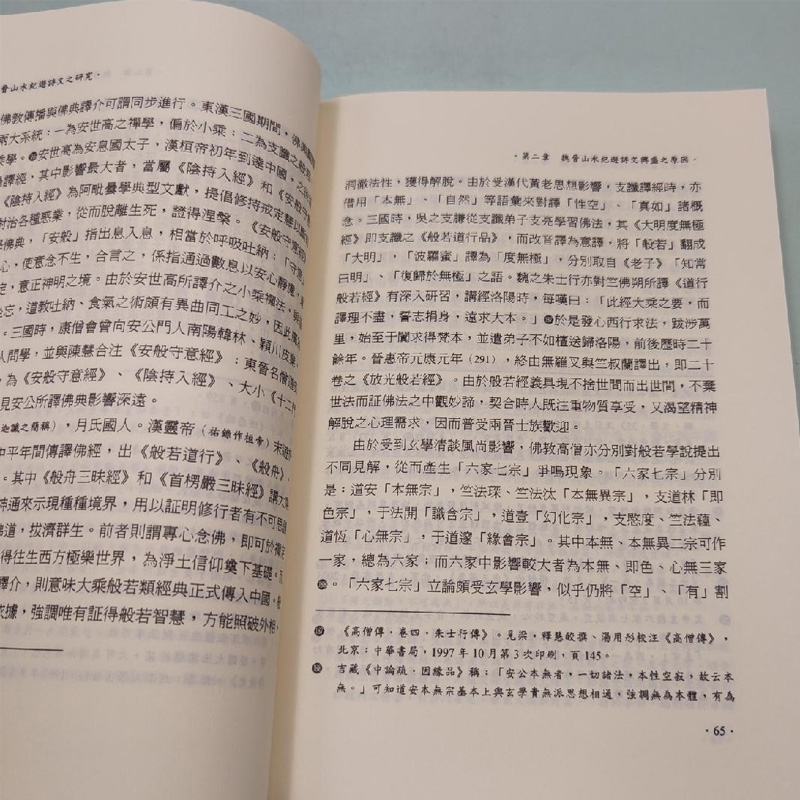 晉山水紀遊詩文之研究·
佛教傳播與佛典譯介可謂同步進行。東漢三國期間，
兩大系統：一為安世高之禪學，偏於小乘；二為支讖之
乘學。安世高為安息國太子，漢桓帝初年到達中國，
譯經，其中影響最大者，當屬《陰持入經》和《安般守
《陰持入經》為阿毗曇學典型文獻，提倡修持戒定慧
對治各種惑業，從而脫離生死，證得涅槃。《安般守意
學佛典，「安般」指出息入息，相當於呼吸吐納；「守意
心，使意念不生，合言之，係指通過數息以安心靜慮，
定，意正神明之境。由於安世高所譯介之小乘禪法，
坐忘，道教吐納、食氣之術頗有異曲同工之妙，因此
。三國時，康僧會曾向安公門人南陽韓林、潁川皮業
人問學，並與陳慧合注《安般守意經》；東晉名僧道安
，為《安般守意經》、《陰持入經》、大小《十二
見安公所譯佛典影響深遠。
迦讖之簡稱），月氏國人。漢靈帝（祐錄作桓帝）末
中平年間傳譯佛經，出《般若道行》、《般舟》、
。其中《般舟三昧經》和《首楞嚴三昧經》講
神通來示現種種境界，用以証明修行者有不可思議
佛道，拔濟群生。前者則謂專心念佛，即可於禪定
得往生西方極樂世界，為淨土信仰奠下基礎。
譯介，則意味大乘般若類經典正式傳入中國，
依據，強調唯有証得般若智慧，方能照破外相，
·第二章 魏晉山水紀遊詩文興盛之原因·
洞澈法性，獲得解脫。由於受漢代黃老思想影響，支讖譯經時，亦
借用「本無」、「自然」等語彙來對譯「性空」、「真如」諸概
念。三國時，吳之支謙從支讖弟子支亮學習佛法，其《大明度無極
經》即支讖之《般若道行品》，而改音譯為意譯，將「般若」翻成
「大明」，「波羅蜜」譯為「度無極」，分別取自《老子》「知常
曰明」、「復歸於無極」之語。魏之朱士行亦對竺佛朔所譯《道行
般若經》有深入研習，講經洛陽時，每嘆曰：「此經大乘之要，而
譯理不盡，誓志捐身，遠求大本。」於是發心西行求法，跋涉萬
里，始至于闐求得梵本，並遣弟子不如檀送歸洛陽，前後歷時二十
餘年。晉惠帝元康元年（291），終由無羅叉與竺叔蘭譯出，即二十
卷之《放光般若經》。由於般若經義具現不捨世間而出世間，不棄
世法而証佛法之中觀妙諦，契合時人既注重物質享受，又渴望精神
解脫之心理需求，因而普受兩晉士族歡迎。
由於受到玄學清談風尚影響，佛教高僧亦分別對般若學說提出
不同見解，從而產生「六家七宗」爭鳴現象。「六家七宗」分別
是：道安「本無宗」，竺法琛、竺法汰「本無異宗」，支道林「即
色宗」，于法開「識含宗」，道壹「幻化宗」，支愍度、竺法蘊、
道恆「心無宗」，于道邃「緣會宗」。其中本無、本無異二宗可作
一家，總為六家；而六家中影響較大者為本無、即色、心無三家
。「六家七宗」立論頗受玄學影響，似乎仍將「空」、「有」割
《高僧傳·卷四·朱士行傳》。見梁，釋慧皎撰、湯用彤校注《高僧傳》，
北京：中華書局，1997年10月第3次印刷，頁145。
吉藏《中論疏·因緣品》稱：「安公本無者，一切諸法，本性空寂，故云本
無。」可知道安本無宗基本上與玄學貴無派思想相通，強調無為本體，有為
·65·